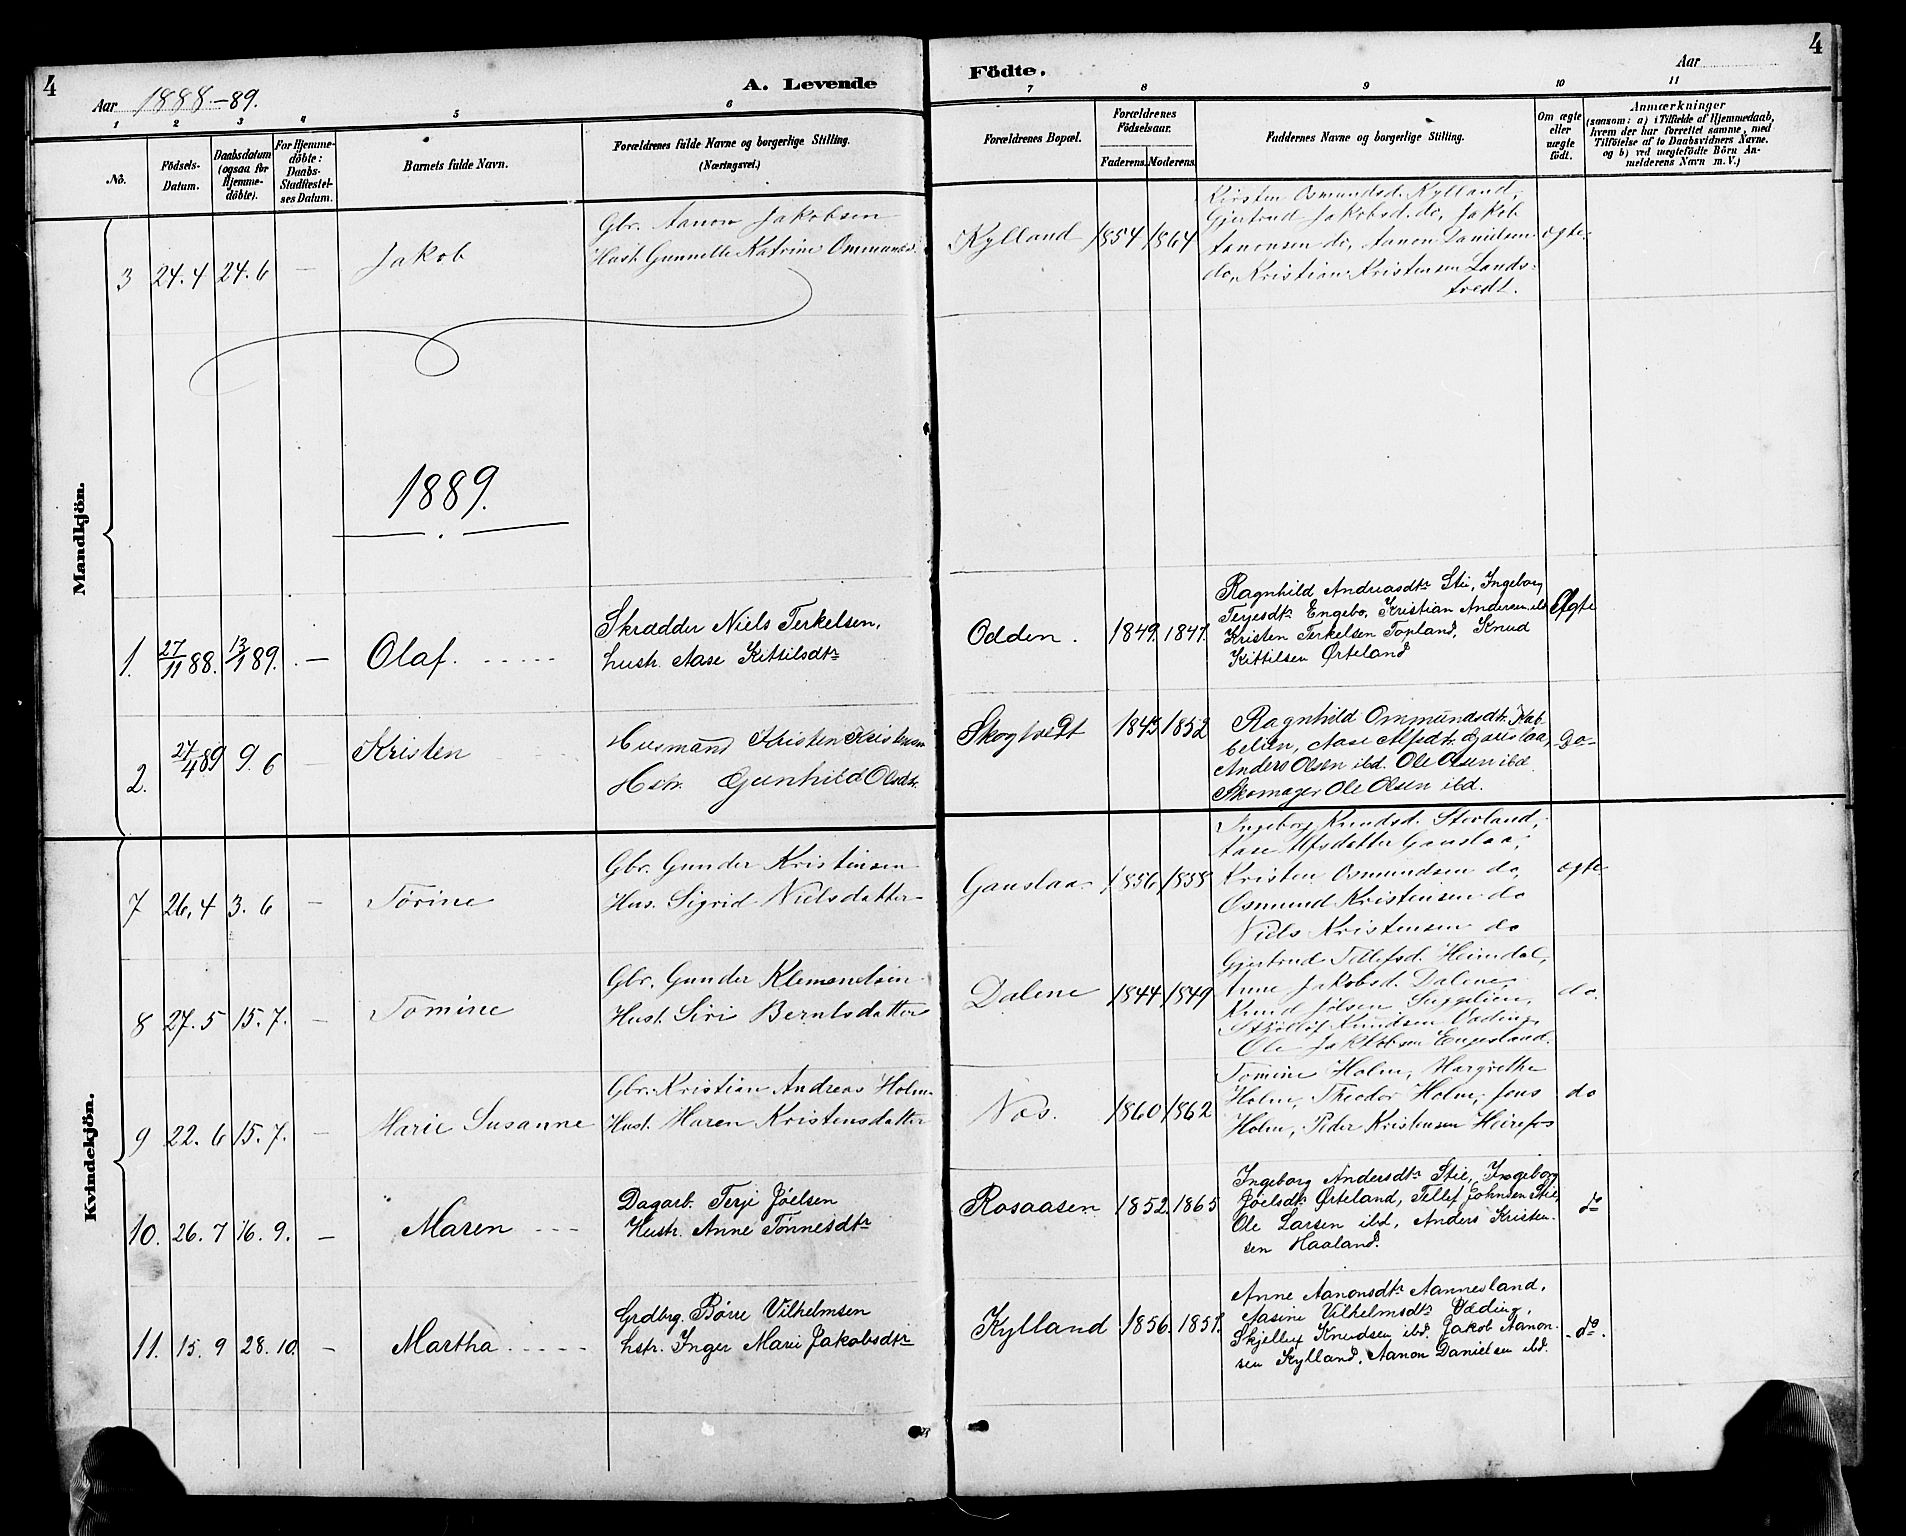 4
Aar 1888.-89.
A. Levende
Födte.
Aar
4
1 2 3 4 5 6 7 8 9 10 11
.No.
Födsels-
Datum.
Daabsdatum
(ogsaa for
Hjemme-
döbte).
For Hjemme-
döbte:
Daabs-
Stadfæstel-
ses Datum.
Barnets fulde Navn.
Forældrenes fulde Navne og borgerlige Stilling.
(Næringsvei.)
Forældrenes Bopæl.
Forældrenes
Födselsaar.
Faderens. Moderens.
Faddernes Navne og borgerlige Stilling.
Om ægte
eller
uægte
födt.
Anmærkninger
(saasom: a) i Tilfælde af Hjemmedaab,
hvem der har forrettet samme, med
Tilföielse af to Daabsvidners Navne,
og b) ved uægtefödte Börn An-
melderens Navn m. V.)
Mandkjön.
3 24.4 24.6 — Jakob
Gbr. Aanon Jakobsen
Hust. Gunnelle Katrine Ommunds.
Kylland 1854 1864
Kirsten Osmundsd. Kylland,
Gjertrud Jakobsd. do, Jakob
Aanonsen do, Aanon Danielsen
do, Kristian Kristensen Lands-
tvedt.
ægte.
1889.
1. 27/11 88. 13/1 89. — Olaf.
Skrædder Niels Terkelsen,
hustr. Aase Kittilsdtr
Odden. 1849. 1847.
Ragnhild Andreasdtr Stie, Ingeborg
Terjesdtr Engebo, Kristian Andersen ibd
Kristen Terkelsen Topland, Knud
Kittilsen Ørteland
Ægte
2. 27/4 89 9. 6 — Kristen
Husmand Kristen Kristensen
Hstr. Gunhild Olsdtr.
Skogtvedt 1843 1852
Ragnhild Ommundsdtr.
Aase
Anders Olsen ibd. Ole Olsen ibd
Skomager Ole Olsen ibd.
do-
Kvindekjön.
7 26.4 3. 6 — Tørine
Gbr. Gunder Kristensen
Hus. Sigrid Nielsdatter
Gauslaa 1856 1858
Ingeborg Knudsd. Stevland,
Aase Ulfsdatter Gauslaa,
Kristen Osmundsen do,
Osmund Kristensen do
Niels Kristensen do
ægte
8 27. 5 15. 7. — Tomine
Gbr. Gunder Klemendsen
Hust. Siri Berntsdatter
Dalene 1844 1849
Gjertrud Tellefsd. Heimdal,
Anne Jakobsd. Dalene,
Knud
Knudsen Væding,
Ole Jakobsen Engesland.
do.
9 22. 6 15. 7. — Marie Susanne
Gbr. Kristian Andreas Holm
Hust. Maren Kristensdatter
Næs. 1860 1862
Tomine Holm, Margrethe
Holm, Theodor Holm, Jens
Holm, Peder Kristensen Heirefos
do
10. 26. 7 16. 9. — Maren
Dagarb. Terje Jøelsen
Hustr. Anne Tønnesdtr
Rosaasen 1852. 1865
Ingeborg Andersdtr Stie, Ingeborg
Jøelsdtr Ørteland, Tellef Johnsen Stie,
Ole Larsen ibd, Anders Kristen-
sen Haaland.
do
11. 15. 9 28. 10 — Martha
Grdbrg. Børre Vilhelmsen
hstr. Inger Marie Jakobsdtr
Kylland 1856. 1857.
Anne Aanonsdtr Aannesland,
Aasine Vilhelmsdtr Væding,
Skjellef Knudsen ibd, Jakob Aanon-
sen Kylland, Aanon Danielsen ibd.
-do-